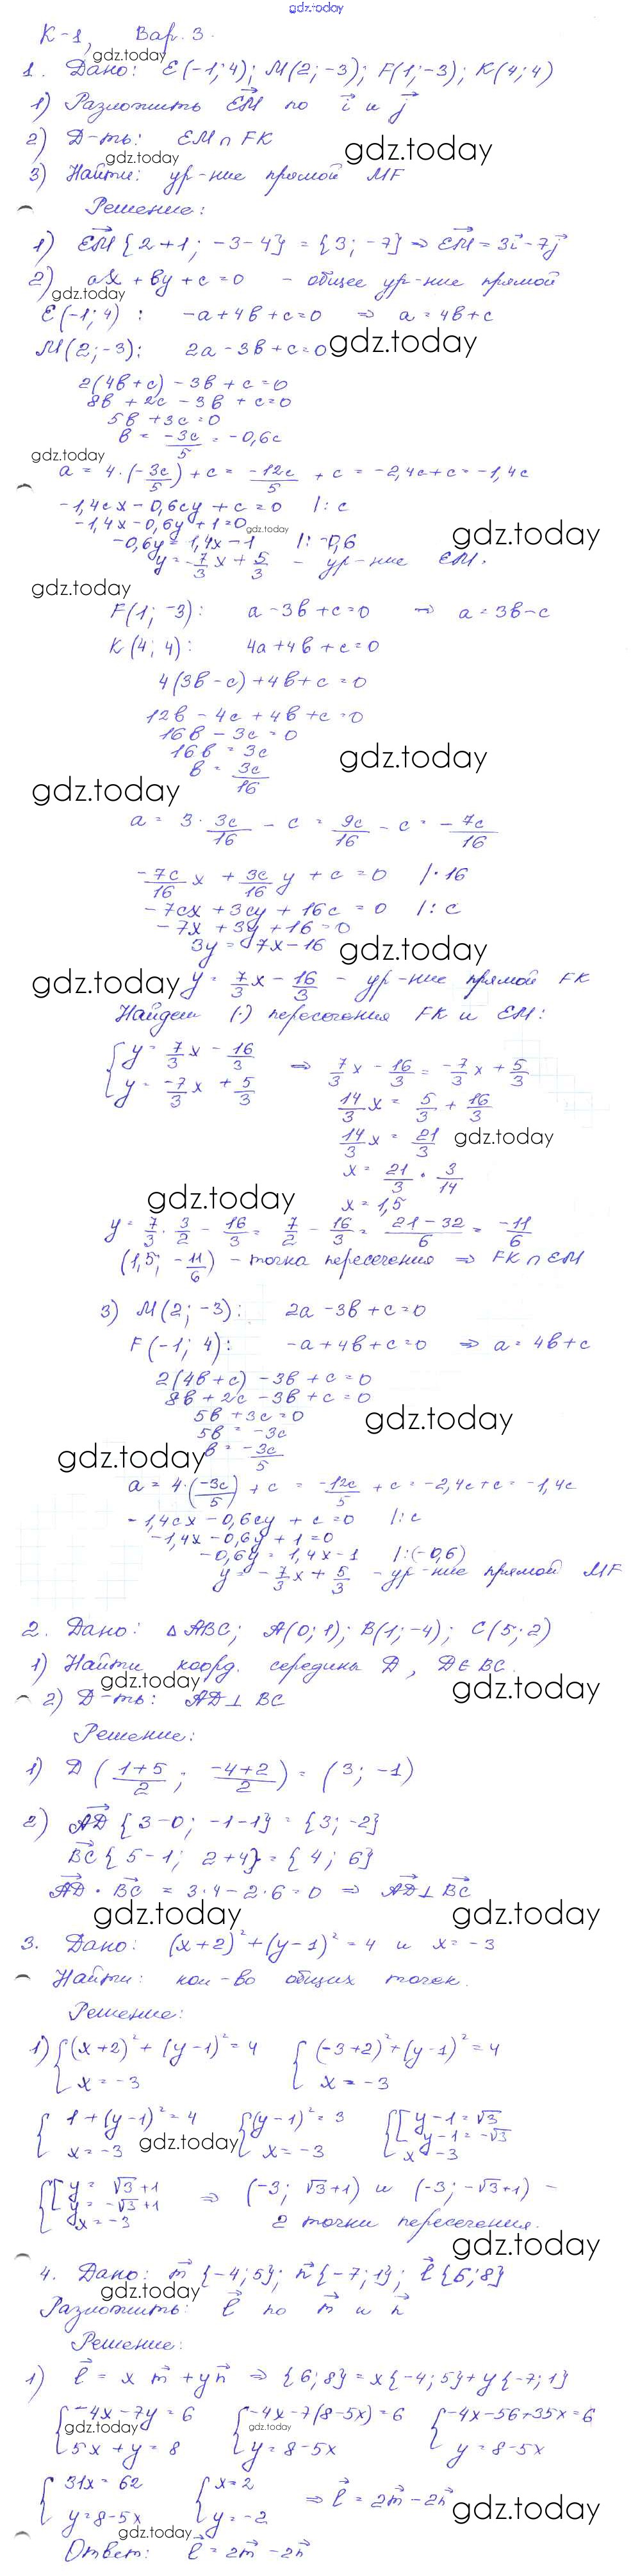 gdz.today
К-1, Вар. 3.
gdz.today
1. Дано: E(-1; 4); M(2; -3); F(1; -3); K(4; 4)
1) Разложить EM по i и j
2) Д-ть: EM ∩ FK
gdz.today gdz.today
3) Найти: ур-ние прямой MF
Решение:
1) EM {2+1; -3-4} = {3; -7} ⇒ EM = 3i - 7j
2) ax + by + c = 0 - общее ур-ние прямой
gdz.today
E(-1; 4): -a + 4b + c = 0 ⇒ a = 4b + c
M(2; -3): 2a - 3b + c = 0 gdz.today
2(4b + c) - 3b + c = 0
8b + 2c - 3b + c = 0
5b + 3c = 0
b = -3c/5 = -0,6c
gdz.today
a = 4·(-3c/5) + c = -12c/5 + c = -2,4c + c = -1,4c
-1,4cx - 0,6cy + c = 0 |: c
-1,4x - 0,6y + 1 = 0 gdz.today
-0,6y = 1,4x - 1 |: -0,6 gdz.today
y = -7/3 x + 5/3 - ур-ние EM.
gdz.today
F(1; -3): a - 3b + c = 0 ⇒ a = 3b - c
K(4; 4): 4a + 4b + c = 0
4(3b - c) + 4b + c = 0
12b - 4c + 4b + c = 0
16b - 3c = 0
16b = 3c gdz.today
b = 3c/16
gdz.today
a = 3 · 3c/16 - c = 9c/16 - c = -7c/16
-7c/16 x + 3c/16 y + c = 0 |· 16
-7cx + 3cy + 16c = 0 |: c
-7x + 3y + 16 = 0
3y = 7x - 16 gdz.today
gdz.today y = 7/3 x - 16/3 - ур-ние прямой FK
Найдем (·) пересечения FK и EM:
{ y = 7/3 x - 16/3 ⇒ 7/3 x - 16/3 = -7/3 x + 5/3
{ y = -7/3 x + 5/3
14/3 x = 5/3 + 16/3
14/3 x = 21/3 gdz.today
x = 21/3 · 3/14
gdz.today x = 1,5
y = 7/3 · 3/2 - 16/3 = 7/2 - 16/3 = 21-32/6 = -11/6
(1,5; -11/6) - точка пересечения ⇒ FK ∩ EM
3) M(2; -3): 2a - 3b + c = 0
F(-1; 4): -a + 4b + c = 0 ⇒ a = 4b + c
2(4b + c) - 3b + c = 0
8b + 2c - 3b + c = 0
5b + 3c = 0 gdz.today
5b = -3c
gdz.today b = -3c/5
a = 4·(-3c/5) + c = -12c/5 + c = -2,4c + c = -1,4c
-1,4cx - 0,6cy + c = 0 |: c
-1,4x - 0,6y + 1 = 0
-0,6y = 1,4x - 1 |: (-0,6)
y = -7/3 x + 5/3 - ур-ние прямой MF
2. Дано: △ABC; A(0; 1); B(1; -4); C(5; 2)
1) Найти коорд. середины D, D∈BC.
gdz.today gdz.today
2) Д-ть: AD ⊥ BC
Решение:
1) D (1+5/2; -4+2/2) = (3; -1)
2) AD {3-0; -1-1} = {3; -2}
BC {5-1; 2+4} = {4; 6}
AD · BC = 3·4 - 2·6 = 0 ⇒ AD ⊥ BC
gdz.today gdz.today
3. Дано: (x+2)² + (y-1)² = 4 и x = -3
Найти: кол-во общих точек.
Решение:
1) { (x+2)² + (y-1)² = 4 { (-3+2)² + (y-1)² = 4
{ x = -3 { x = -3
{ 1 + (y-1)² = 4 { (y-1)² = 3 { [ y-1 = √3
{ x = -3 gdz.today { x = -3 [ y-1 = -√3
x = -3
{ [ y = √3+1 ⇒ (-3; √3+1) и (-3; -√3+1) -
[ y = -√3+1
x = -3 2 точки пересечения.
gdz.today
4. Дано: m {-4; 5}; n {-7; 1}; l {6; 8}
gdz.today
Разложить: l по m и n
Решение:
1) l = x m + y n ⇒ {6; 8} = x{-4; 5} + y{-7; 1}
{ -4x - 7y = 6 { -4x - 7(8-5x) = 6 { -4x - 56 + 35x = 6
gdz.today gdz.today
{ 5x + y = 8 { y = 8-5x { y = 8-5x
{ 31x = 62 { x = 2 ⇒ l = 2m - 2n
{ y = 8-5x { y = -2 gdz.today
gdz.today
Ответ: l = 2m - 2n